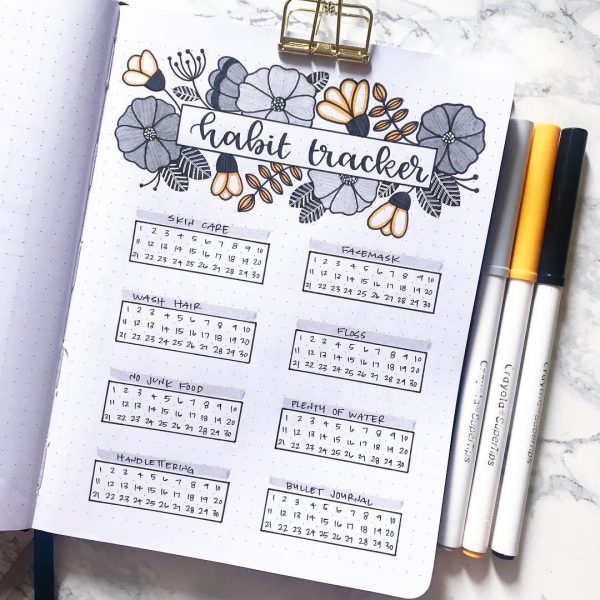 habit tracker
SKIN CARE
1 2 3 4 5 6 7 8 9 10
11 12 13 14 15 16 17 18 19 20
21 22 23 24 25 26 27 28 29 30
FACEMASK
1 2 3 4 5 6 7 8 9 10
11 12 13 14 15 16 17 18 19 20
21 22 23 24 25 26 27 28 29 30
WASH HAIR
1 2 3 4 5 6 7 8 9 10
11 12 13 14 15 16 17 18 19 20
21 22 23 24 25 26 27 28 29 30
FLOSS
1 2 3 4 5 6 7 8 9 10
11 12 13 14 15 16 17 18 19 20
21 22 23 24 25 26 27 28 29 30
NO JUNK FOOD
1 2 3 4 5 6 7 8 9 10
11 12 13 14 15 16 17 18 19 20
21 22 23 24 25 26 27 28 29 30
PLENTY OF WATER
1 2 3 4 5 6 7 8 9 10
11 12 13 14 15 16 17 18 19 20
21 22 23 24 25 26 27 28 29 30
HANDLETTERING
1 2 3 4 5 6 7 8 9 10
11 12 13 14 15 16 17 18 19 20
21 22 23 24 25 26 27 28 29 30
BULLET JOURNAL
1 2 3 4 5 6 7 8 9 10
11 12 13 14 15 16 17 18 19 20
21 22 23 24 25 26 27 28 29 30
Crayola SuperTips
Crayola SuperTips
Crayola